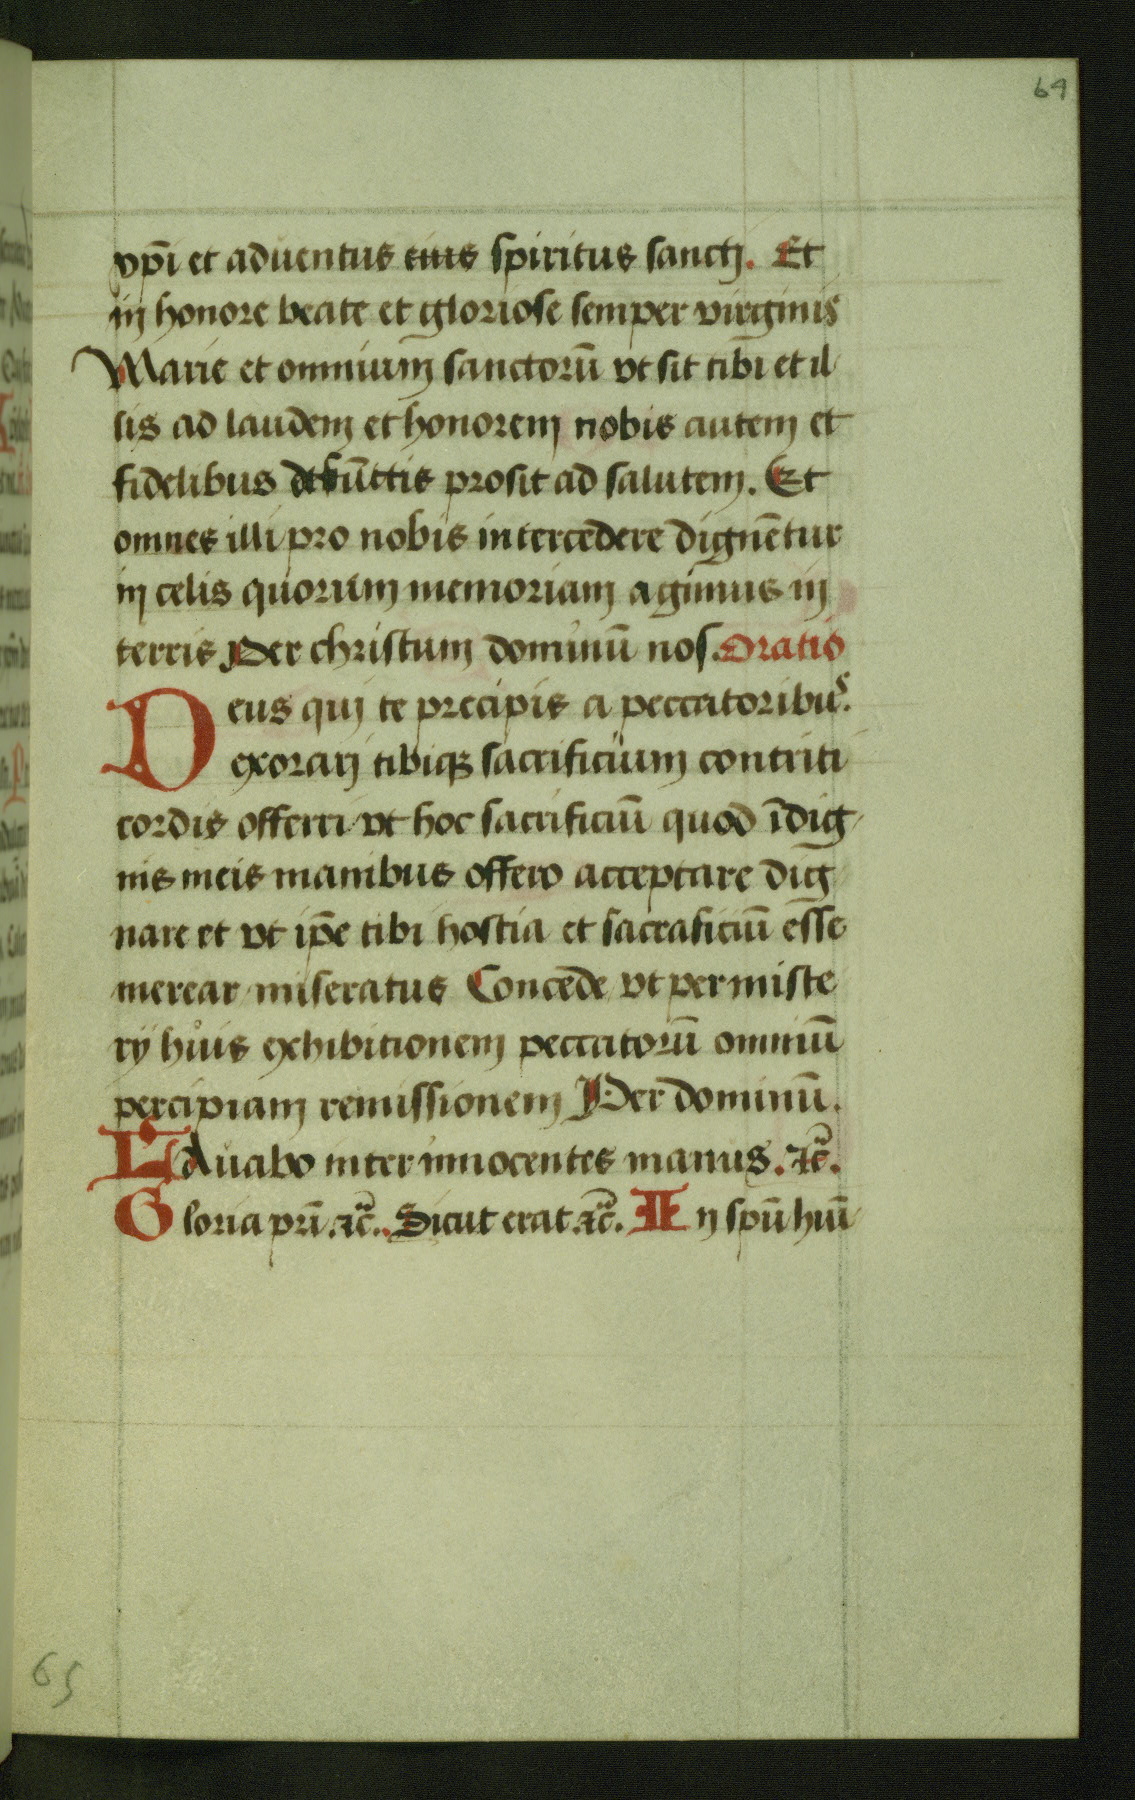 64
xp̄i et aduentus eius spiritus sancti. Et
in honore beate et gloriose semper virginis
Marie et omnium sanctorū vt sit tibi et il
lis ad laudem et honorem nobis autem et
fidelibus defūctis prosit ad salutem. Et
omnes illi pro nobis intercedere dignētur
in celis quorum memoriam agimus in
terris Per christum dominū nos. Oratio
Deus qui te precipis a peccatoribus.
exorari tibiqꝫ sacrificium contriti
cordis offerri vt hoc sacrificiū quod īdig
nis meis manibus offero acceptare dig
nare et vt ip̄e tibi hostia et sacraficiū esse
merear miseratus Concede vt per miste
rij huius exhibitionem peccatorū omniū
percipiam remissionem Per dominū.
LAuabo inter innocentes manus. ⁊c̄.
Gloria pr̄i. ⁊c̄. Sicut erat. ⁊c̄. In spū huī
65